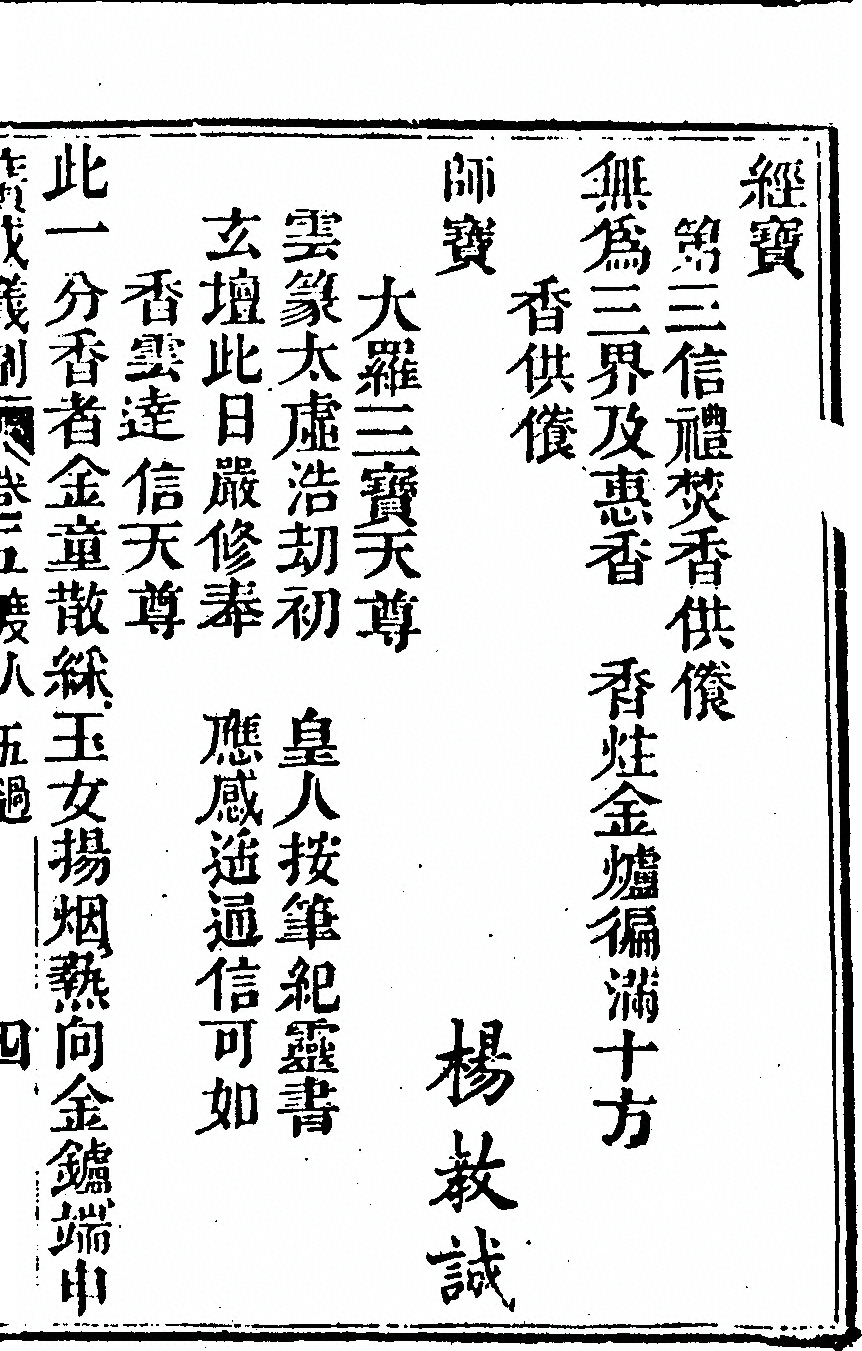 經寶
第三信禮焚香供養
無為三界及惠香　香炷金爐徧滿十方
香供養
師寶　楊教誠
大羅三寶天尊
雲篆太虛浩劫初　皇人按筆紀靈書
玄壇此日嚴修奉　應感遥通信可如
香雲達信天尊
此一分香者金童散綵玉女揚烟熱向金鑪端申
廣成儀制 卷 五 人 五過　四